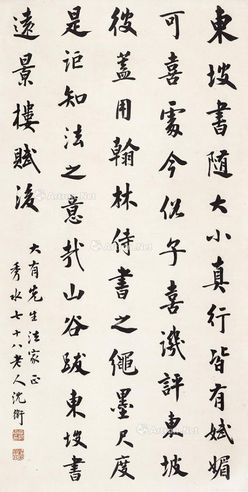 東坡書隨大小真行皆有娬媚
可喜處今俗子喜譏評東坡
彼蓋用翰林侍書之繩墨尺度
是詎知法之意哉山谷跋東坡書
遠景樓賦後
大有先生法家正
秀水七十八老人沈衛